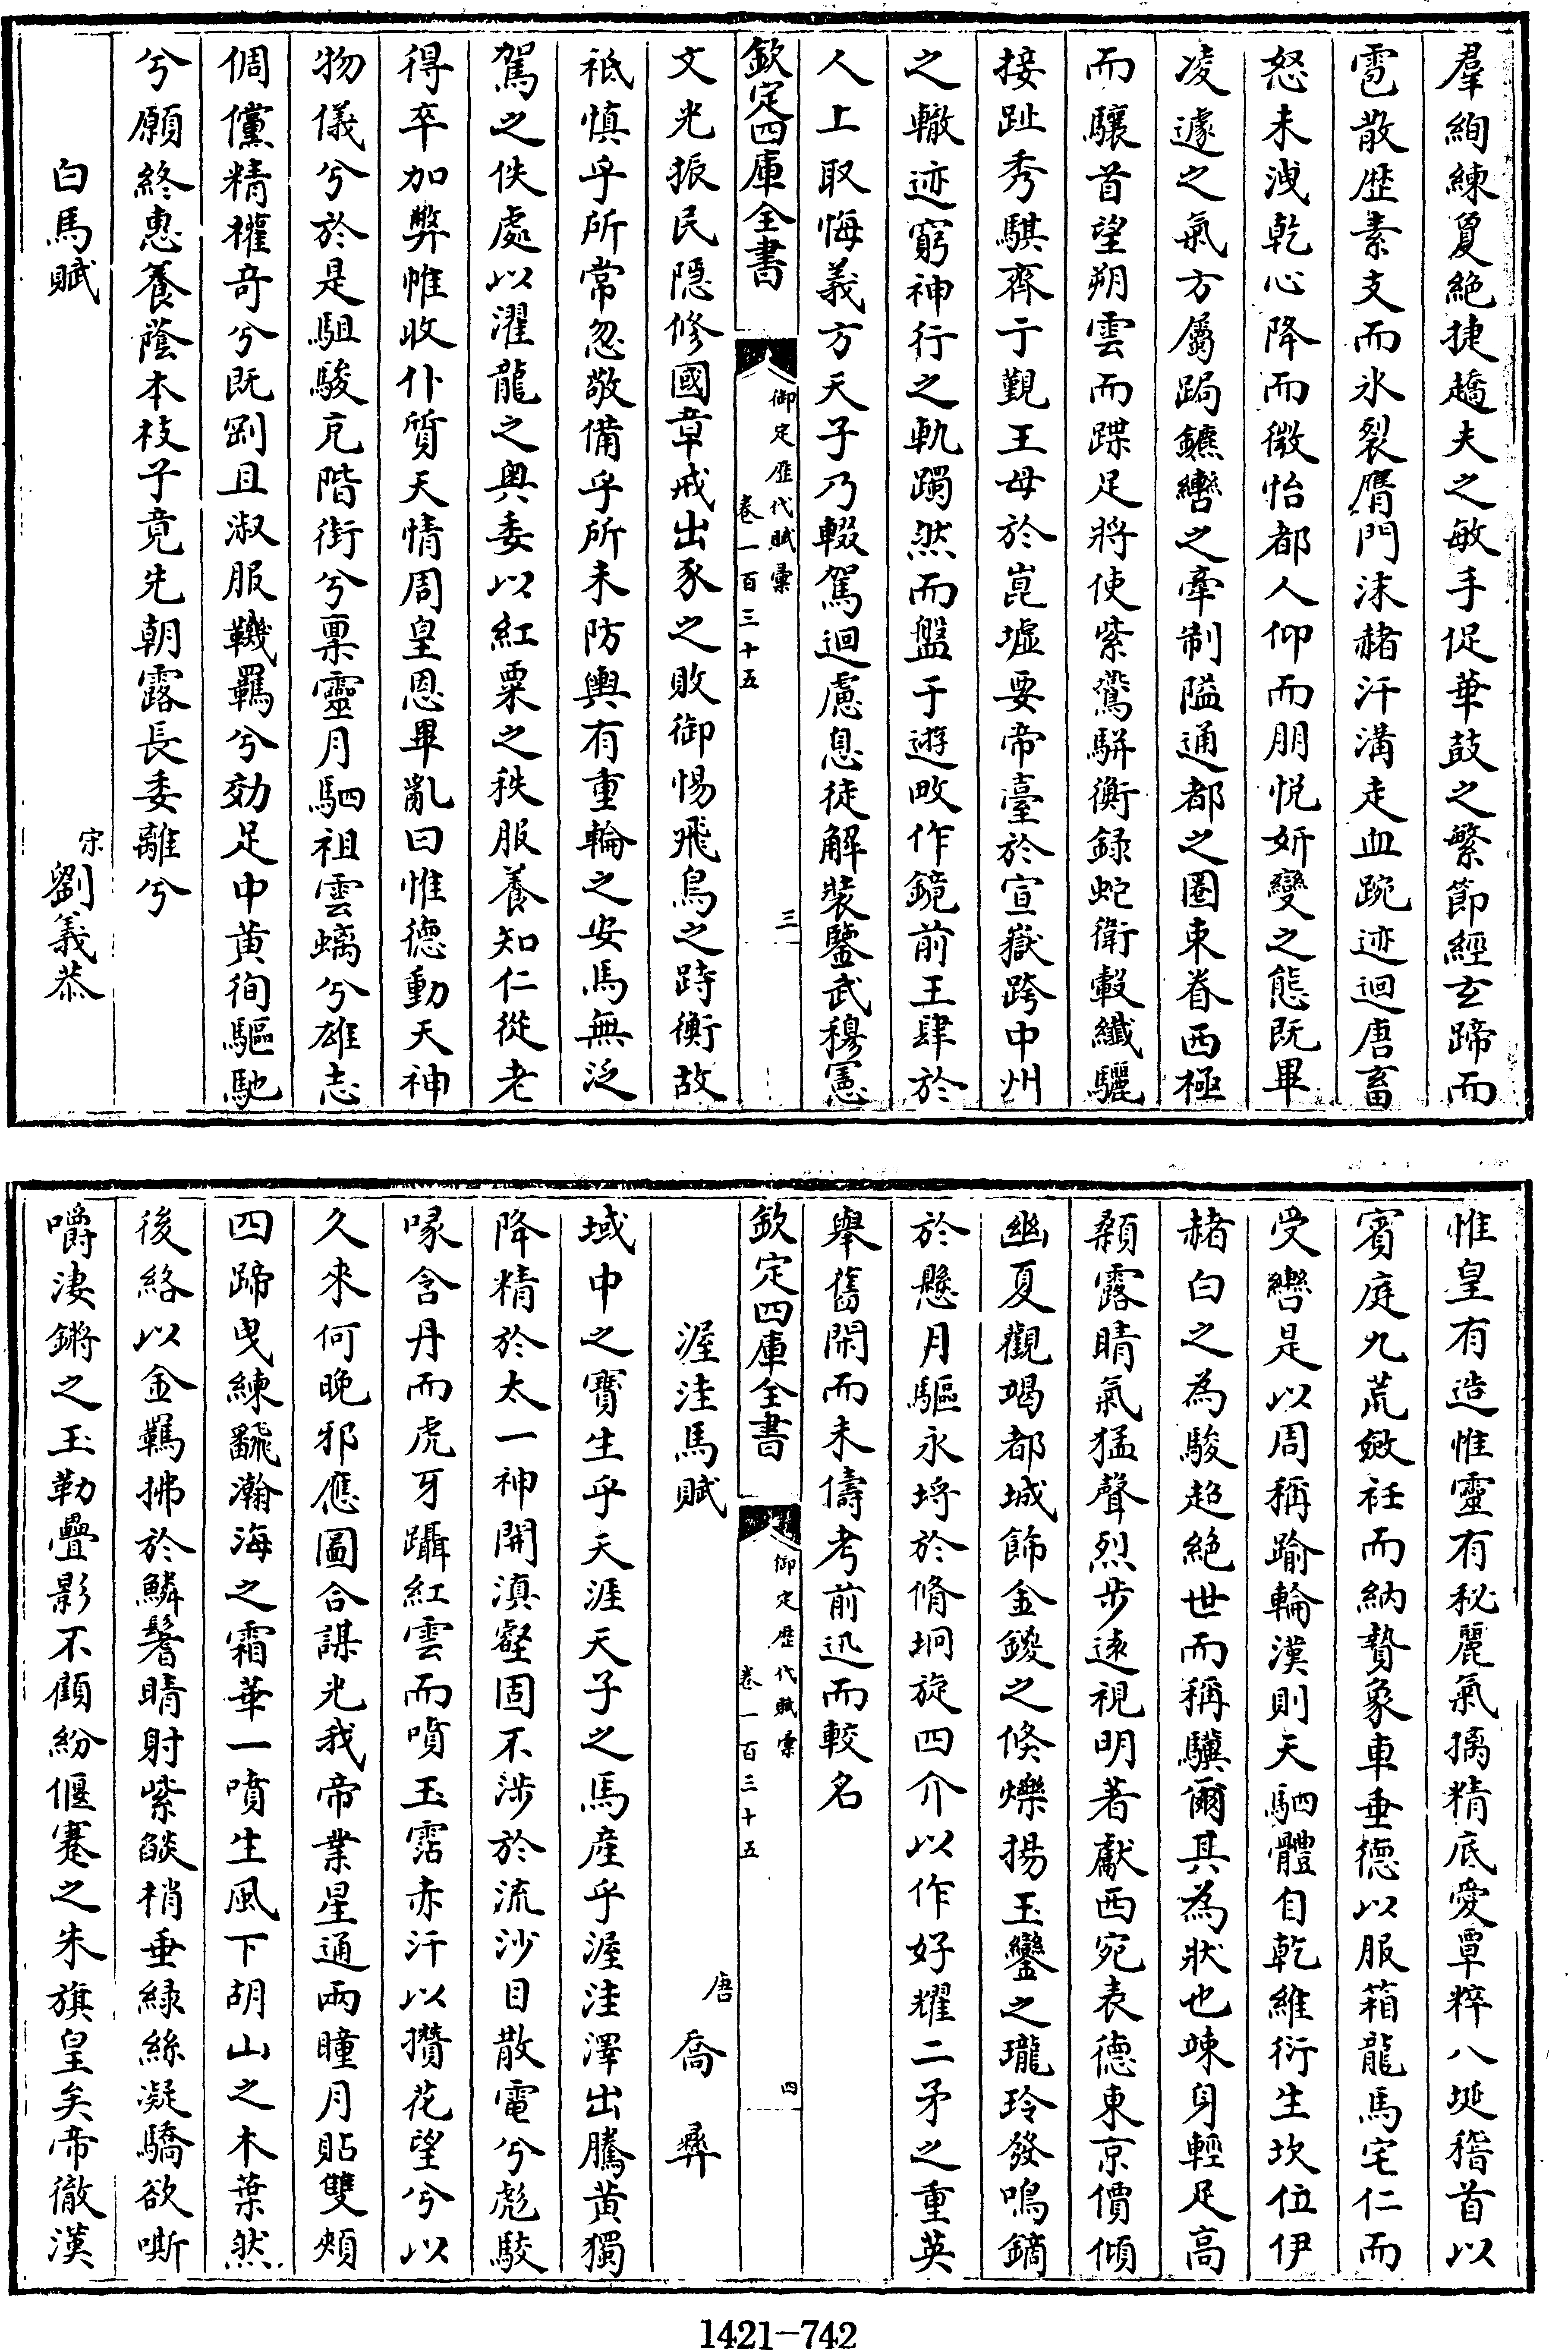 羣絢練夐絶捷趫夫之敏手促華鼓之繁節經玄蹄而
雹散歴素支而氷裂膺門沫赭汗溝走血踠迹迴唐畜
怒未洩乾心降而微怡都人仰而朋悦妍變之態既畢
凌遽之氣方屬跼鑣轡之牽制隘通都之圏束眷西極
而驤首望朔雲而蹀足將使紫鷰駢衡緑蛇衛轂纖驪
接趾秀騏齊亍覲王母於崑墟要帝臺於宣嶽跨中州
之轍迹窮神行之軌躅然而盤于遊畋作鏡前王肆於
人上取悔義方天子乃輟駕迴慮息徒解裝鑒武穆憲
欽定四庫全書
御定歴代賦彙
卷一百三十五
三
文光振民隠修國章戒出豕之敗御惕飛鳥之跱衡故
祗慎乎所常忽敬備乎所未防輿有重輪之安馬無泛
駕之佚處以濯龍之奥委以紅粟之秩服養知仁從老
得卒加弊帷收仆質天情周皇恩畢亂曰惟德動天神
物儀兮於是駔駿充階街兮禀靈月駟祖雲螭兮雄志
倜儻精權奇兮既剛且淑服鞿羈兮効足中黄徇驅馳
兮願終惠養蔭本枝兮竟先朝露長委離兮
白馬賦
宋劉義恭
惟皇有造惟靈有秘麗氣摛精底愛覃粹八埏稽首以
賓庭九荒斂衽而納贄象車垂德以服箱龍馬宅仁而
受轡是以周稱踰輪漢則天駟體自乾維衍生坎位伊
赭白之為駿超絶世而稱驥爾其為狀也竦身輕足高
顙露睛氣猛聲烈步遠視明著獻西宛表德東京價傾
幽夏觀竭都城飾金鍐之倏爍揚玉鑾之瓏玲發鳴鏑
於懸月驅永埒於脩坰旋四介以作好耀二矛之重英
舉舊閑而未儔考前迅而較名
欽定四庫全書
御定歴代賦彙
卷一百三十五
四
渥洼馬賦
唐喬彞
域中之寶生乎天涯天子之馬産乎渥洼澤出騰黄獨
降精於太一神開滇壑固不渉於流沙目散電兮彪駿
喙含丹而虎牙躡紅雲而噴玉霑赤汗以攢花望兮以
久來何晚邪應圖合諜光我帝業星通兩瞳月貼雙頰
四蹄曳練飜瀚海之霜華一噴生風下胡山之木葉然
後絡以金羈拂於鱗鬐睛射紫燄梢垂緑絲凝驕欲嘶
嚼淒鏘之玉勒疊影不傾紛偃蹇之朱旗皇矣帝徹漢
1421-742